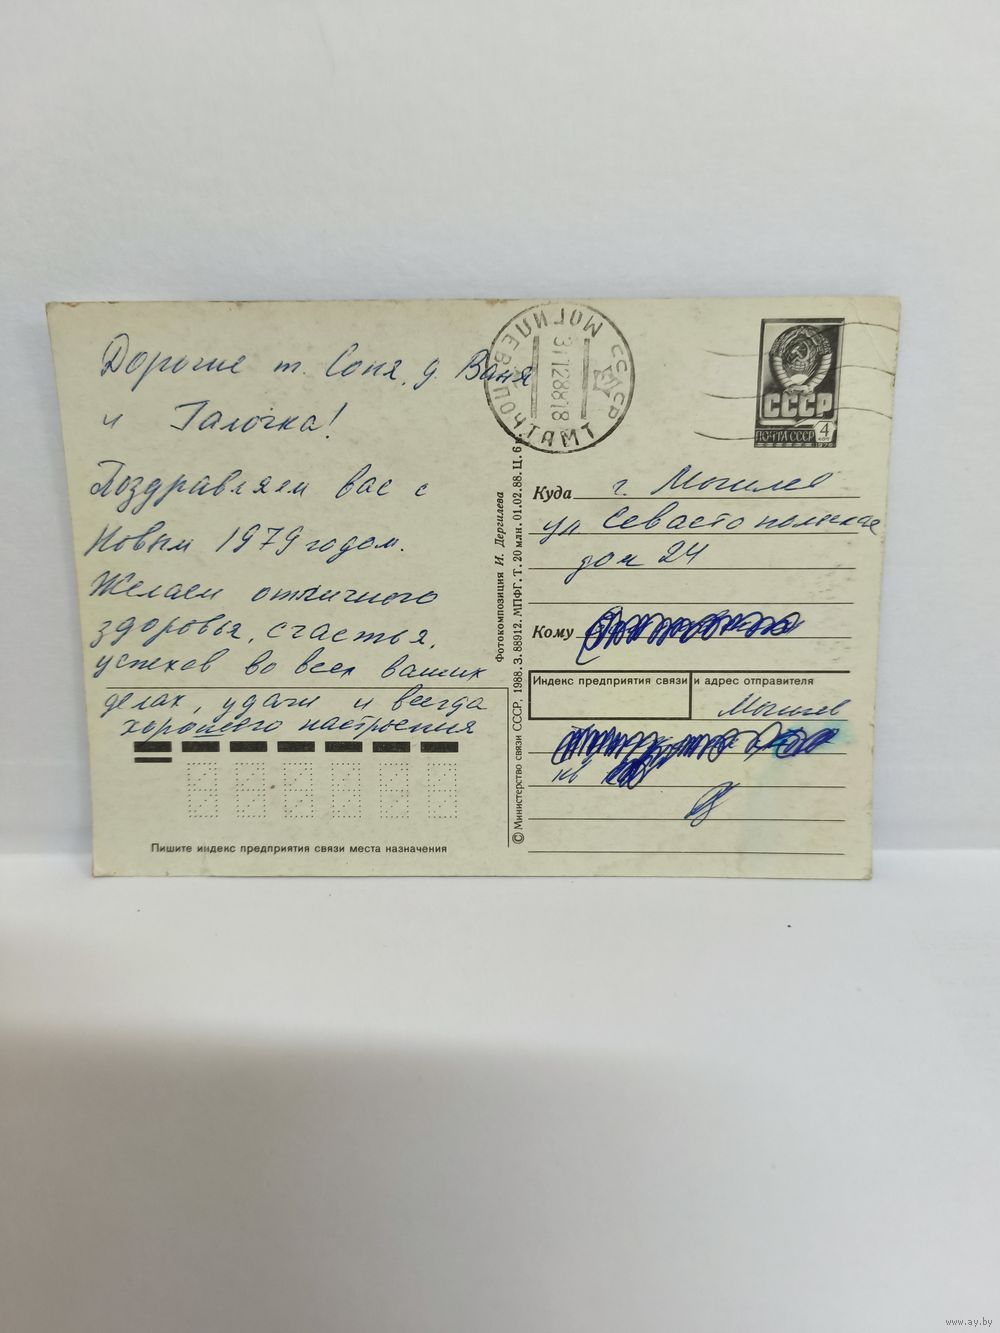 Дорогие т. Соня, д. Ваня
и Галочка!
Поздравляем вас с
Новым 1979 годом.
Желаем отличного
здоровья, счастья,
успехов во всех ваших
делах, удачи и всегда
хорошего настроения
Пишите индекс предприятия связи места назначения
© Министерство связи СССР, 1988. З. 88912. МПФГ. Т. 20 млн. 01.02.88. Ц. 6
Фотокомпозиция И. Дергилева
МОГИЛЕВ ПОЧТАМТ
СССР
СССР
ПОЧТА СССР 4
КОП
Куда г. Могилев
ул. Севастопольская
дом 24
Кому
Индекс предприятия связи и адрес отправителя
Могилев
кв
www.ay.by